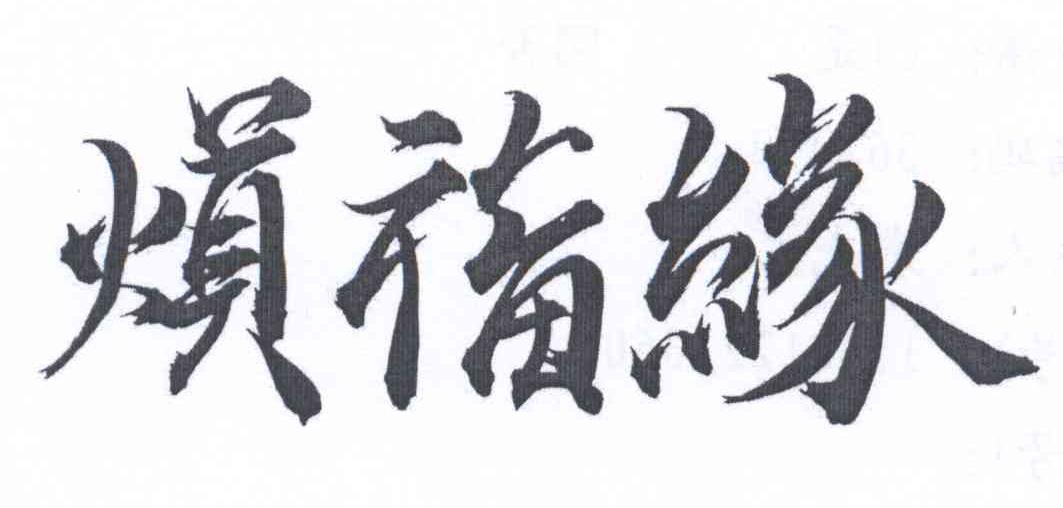 熉福緣